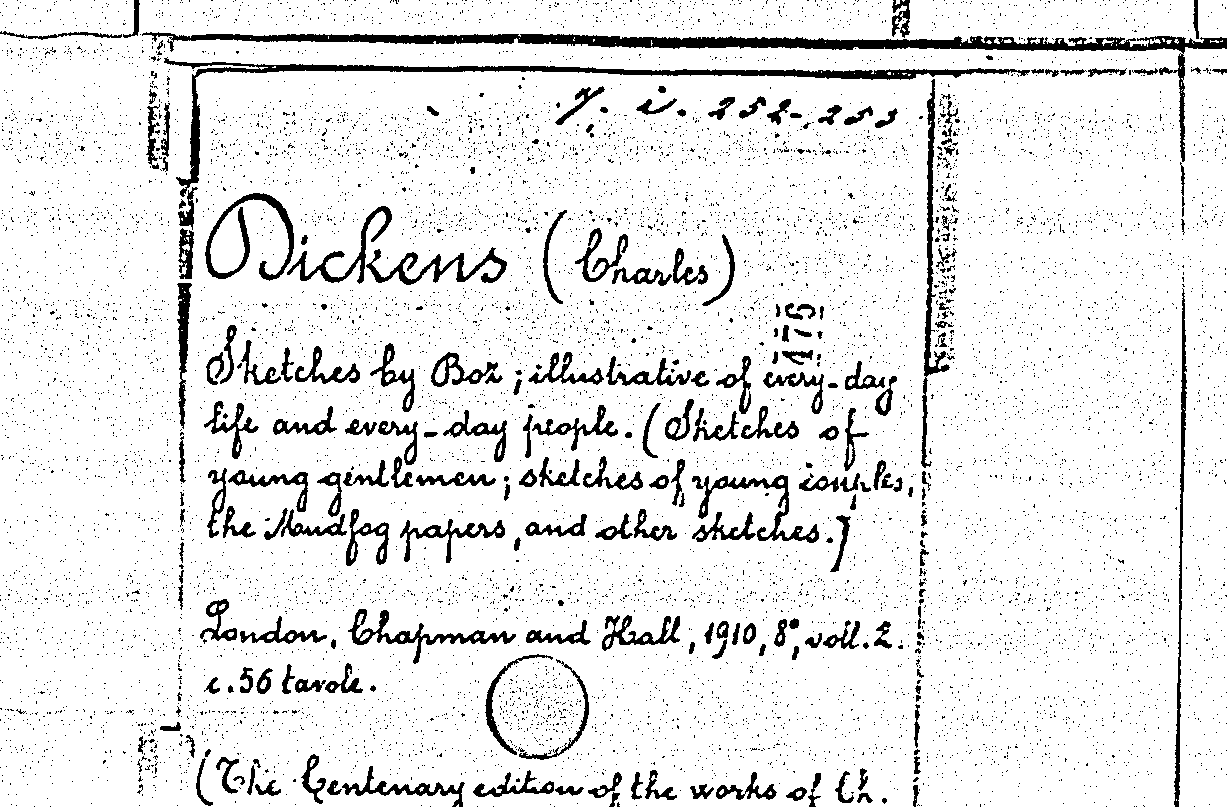 y. i. 252-253
Dickens (Charles)
475
Sketches by Boz; illustrative of every-day
life and every-day people. (Sketches of
young gentlemen; sketches of young couples,
the Mudfog papers, and other sketches.)
London, Chapman and Hall, 1910, 8°, voll. 2.
c. 56 tavole.
(The Centenary edition of the works of Ch.